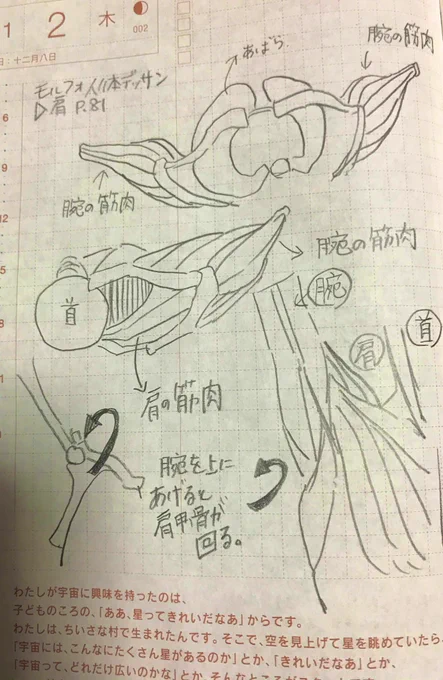 1 2 木
002
日：十二月八日
モルフォ人体デッサン
▷肩 P.81
あばら
腕の筋肉
腕の筋肉
腕の筋肉
首
腕
首
肩
肩の筋肉
腕を上に
あげると
肩甲骨が
回る。
6
9
12
わたしが宇宙に興味を持ったのは、
子どものころの、「ああ、星ってきれいだなあ」からです。
わたしは、ちいさな村で生まれたんです。そこで、空を見上げて星を眺めていたら、
「宇宙には、こんなにたくさん星があるのか」とか、「きれいだなあ」とか、
「宇宙って、どれだけ広いのかな」とか、そんなところが